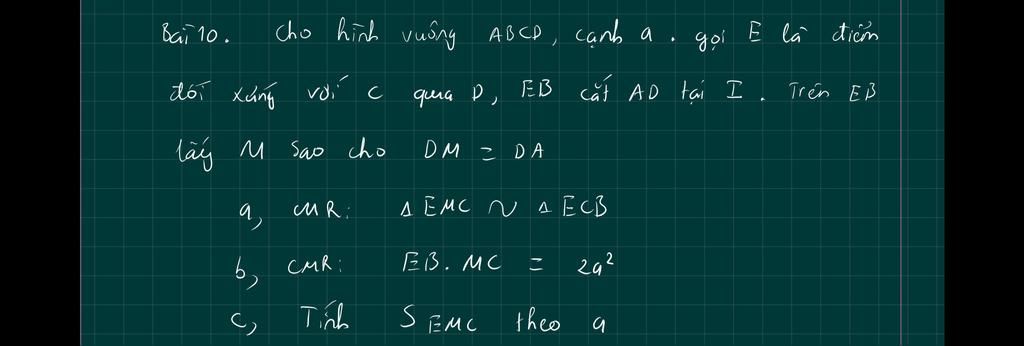 Bài 10. Cho hình vuông ABCD, cạnh a. gọi E là điểm
đối xứng với C qua D, EB cắt AD tại I. Trên EB
lấy M sao cho DM = DA
a, CMR: Δ EMC ~ Δ ECB
b, CMR: EB. MC = 2a²
c, Tính S EMC theo a